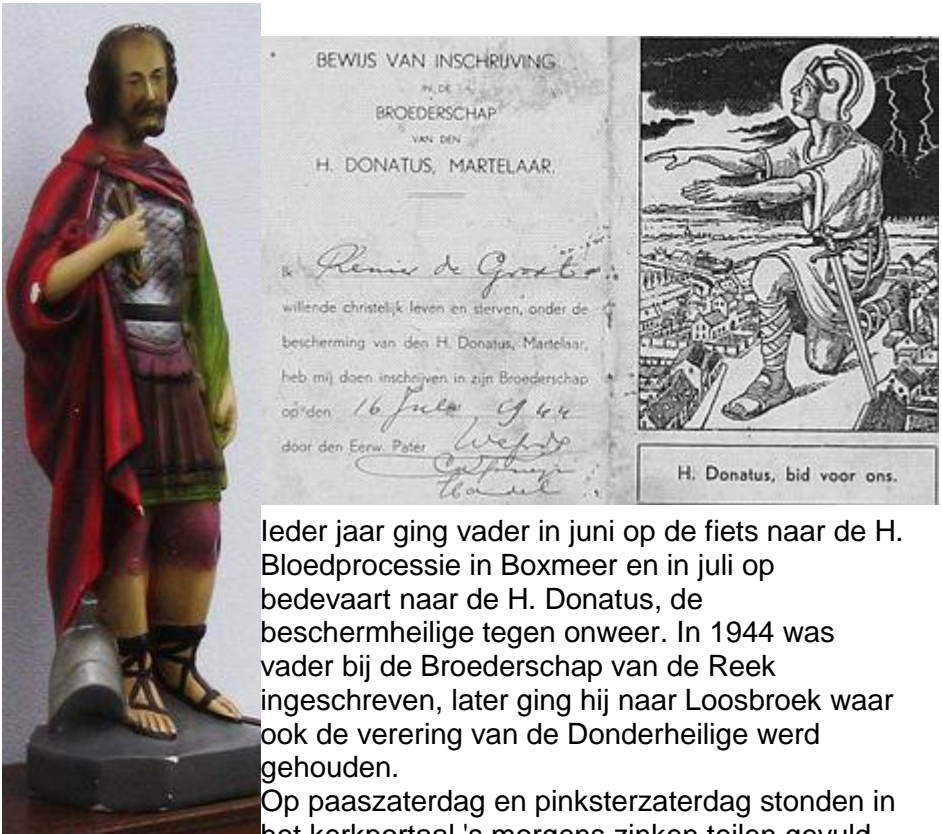 BEWIJS VAN INSCHRIJVING
IN DE
BROEDERSCHAP
VAN DEN
H. DONATUS, MARTELAAR.
Ik Renier de Groot
willende christelijk leven en sterven, onder de
bescherming van den H. Donatus, Martelaar,
heb mij doen inschrijven in zijn Broederschap
op den 16 Juli 1944
door den Eerw. Pater
Handel
H. Donatus, bid voor ons.
Ieder jaar ging vader in juni op de fiets naar de H.
Bloedprocessie in Boxmeer en in juli op
bedevaart naar de H. Donatus, de
beschermheilige tegen onweer. In 1944 was
vader bij de Broederschap van de Reek
ingeschreven, later ging hij naar Loosbroek waar
ook de verering van de Donderheilige werd
gehouden.
Op paaszaterdag en pinksterzaterdag stonden in
het kerkportaal 's morgens zinken teilen gevuld